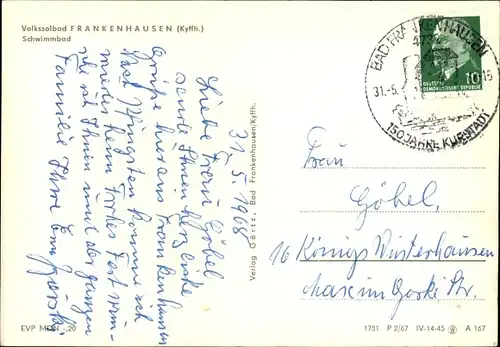 Volkssolbad FRANKENHAUSEN (Kyffh.)
Schwimmbad
31. 5. 1968
Liebe Frau Göbel
sende Ihnen herzliche
Grüße hier aus Frankenhausen
Nach Pfingsten komme ich
wieder heim Frohes Fest wün-
sche ich Ihnen und der ganzen
Familie Ihre
EVP MDN -,20
Verlag Görtz, Bad Frankenhausen/Kyffh.
BAD FRANKENHAUSEN
4732
31.-5.
150 JAHRE KURSTADT
10
DEUTSCHE
DEMOKRATISCHE REPUBLIK
Frau
Göbel,
16 Königs Wusterhausen
Maxim Gorki Str.
1781 P 2/67 IV-14-45 A 167